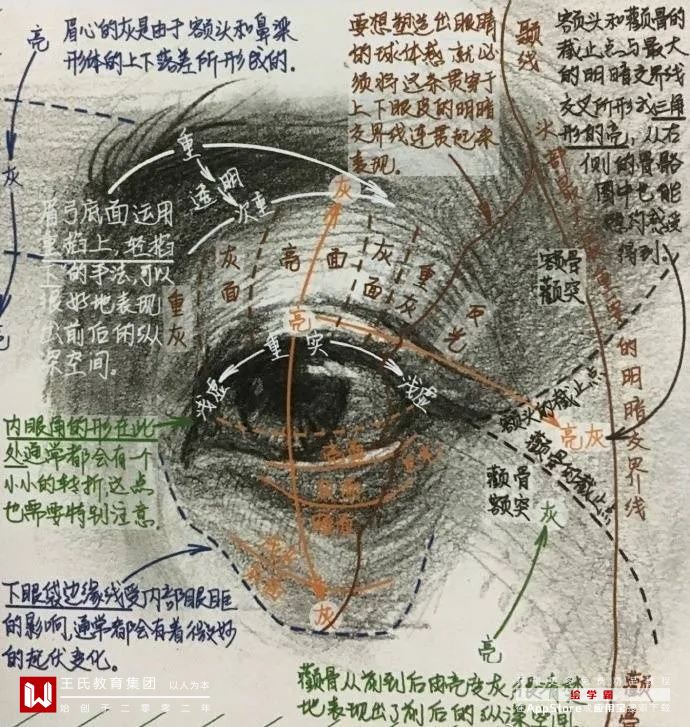 眉心的灰是由于额头和鼻梁
形体的上下落差所形成的.
亮
灰
亮
要想塑造出眼睛
的球体感,就必
须将这条贯穿于
上下眼皮的明暗
交界线连贯起来
表现。
颞线
额头和颧骨的
截止点与最大
的明暗交界线
交叉所形成三角
形的亮,从右
侧的骨骼
图中也能
得到.
重
透明
次重
灰
眉弓底面运用
的手法,可以
很好地表现
出前后的纵
深空间。
重灰
灰面
亮面
灰面
重灰
反光
额骨
颧突
的明暗交界线
亮
重实
浅虚
浅虚
额头的截止点
颧骨的截止点
亮灰
颧骨
额突
灰
亮
内眼角的形在此
处通常都会有一个
小小的转折,这点
也需要特别注意.
灰
下眼袋边缘线受内部眼眶
的影响,通常都会有着微妙
的起伏变化。
颧骨从前到后由亮变灰
地表现出了前后的纵深空间.
王氏教育集团 以人为本
始创于二零零二年
绘学霸
在AppStore或应用宝里下载